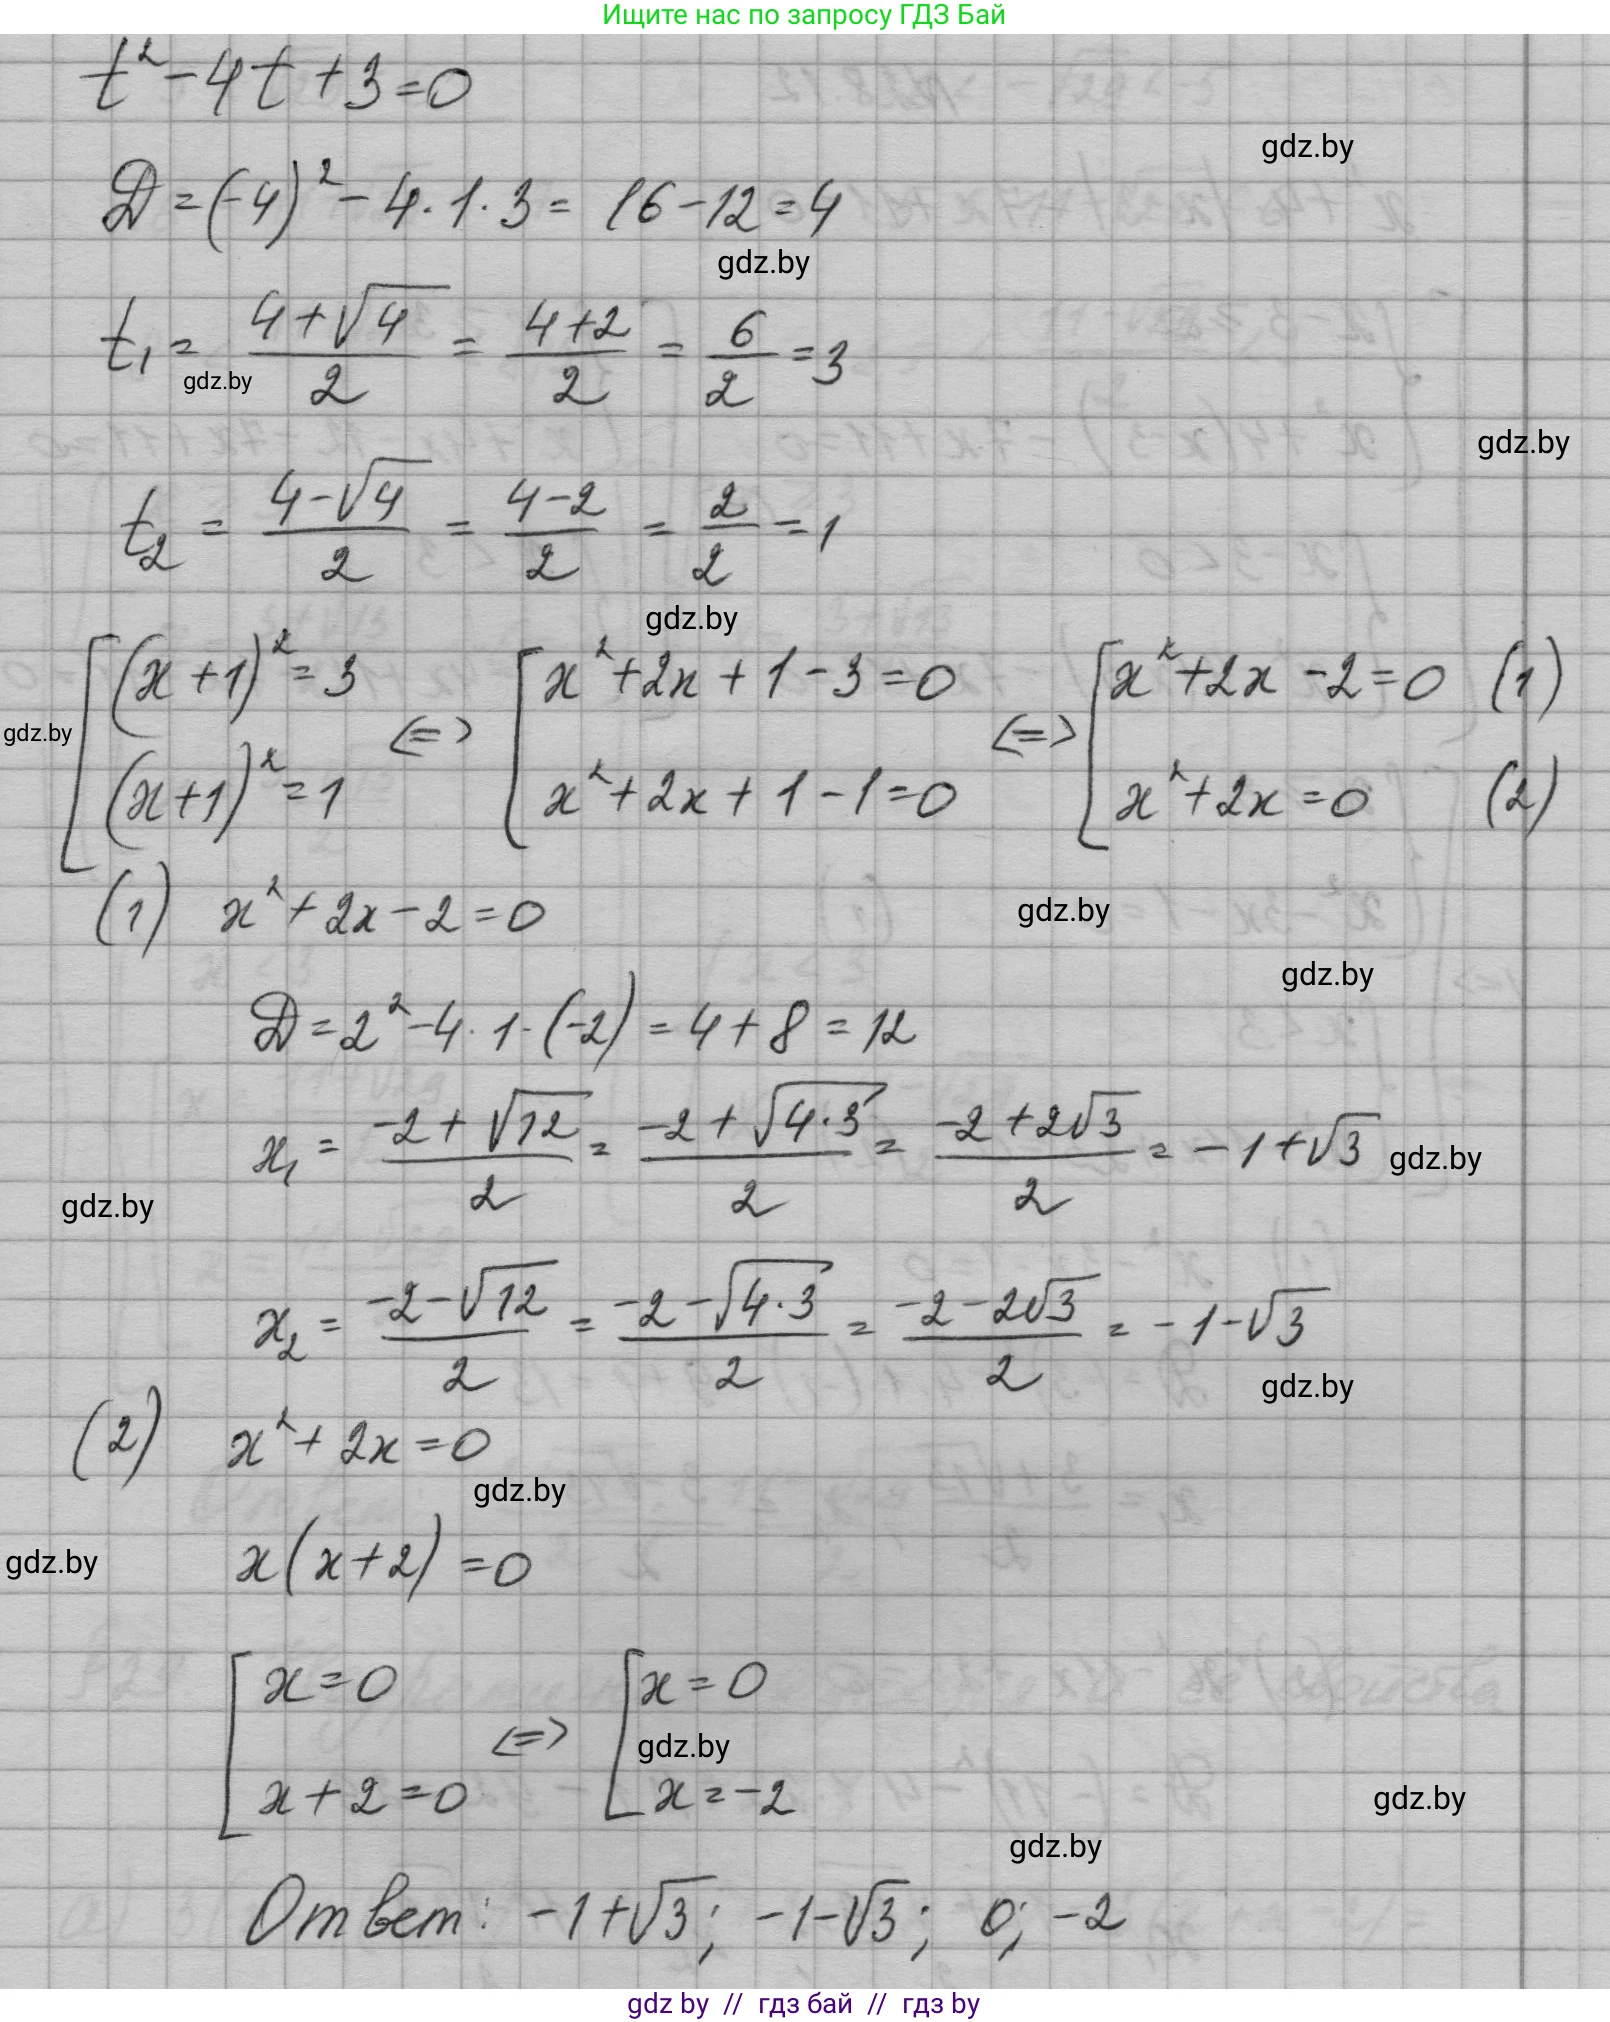 Ищите нас по запросу ГДЗ Бай
t² - 4t + 3 = 0
gdz.by
D = (-4)² - 4 · 1 · 3 = 16 - 12 = 4
gdz.by
t₁ = (4 + √4)/2 = (4 + 2)/2 = 6/2 = 3
gdz.by
gdz.by
t₂ = (4 - √4)/2 = (4 - 2)/2 = 2/2 = 1
gdz.by
[ (x + 1)² = 3 <=> [ x² + 2x + 1 - 3 = 0 <=> [ x² + 2x - 2 = 0 (1)
gdz.by
(x + 1)² = 1 x² + 2x + 1 - 1 = 0 x² + 2x = 0 (2)
(1) x² + 2x - 2 = 0
gdz.by
gdz.by
D = 2² - 4 · 1 · (-2) = 4 + 8 = 12
x₁ = (-2 + √12)/2 = (-2 + √4·3)/2 = (-2 + 2√3)/2 = -1 + √3
gdz.by
gdz.by
x₂ = (-2 - √12)/2 = (-2 - √4·3)/2 = (-2 - 2√3)/2 = -1 - √3
gdz.by
(2) x² + 2x = 0
gdz.by
gdz.by
x(x + 2) = 0
[ x = 0 <=> [ x = 0
gdz.by
x + 2 = 0 x = -2
gdz.by
gdz.by
Ответ: -1 + √3; -1 - √3; 0; -2
gdz by // гдз бай // гдз by